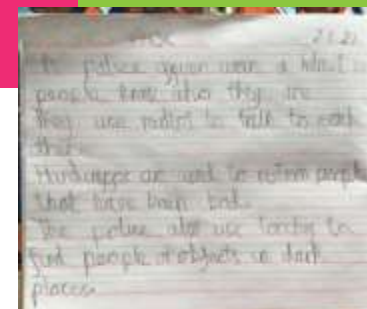 The police officer wear a hat
people know who they are
They use radios to talk to each
other.
Handcuffs are used to people
that have been bad.
The police also use torches to
find people or objects in dark
places.